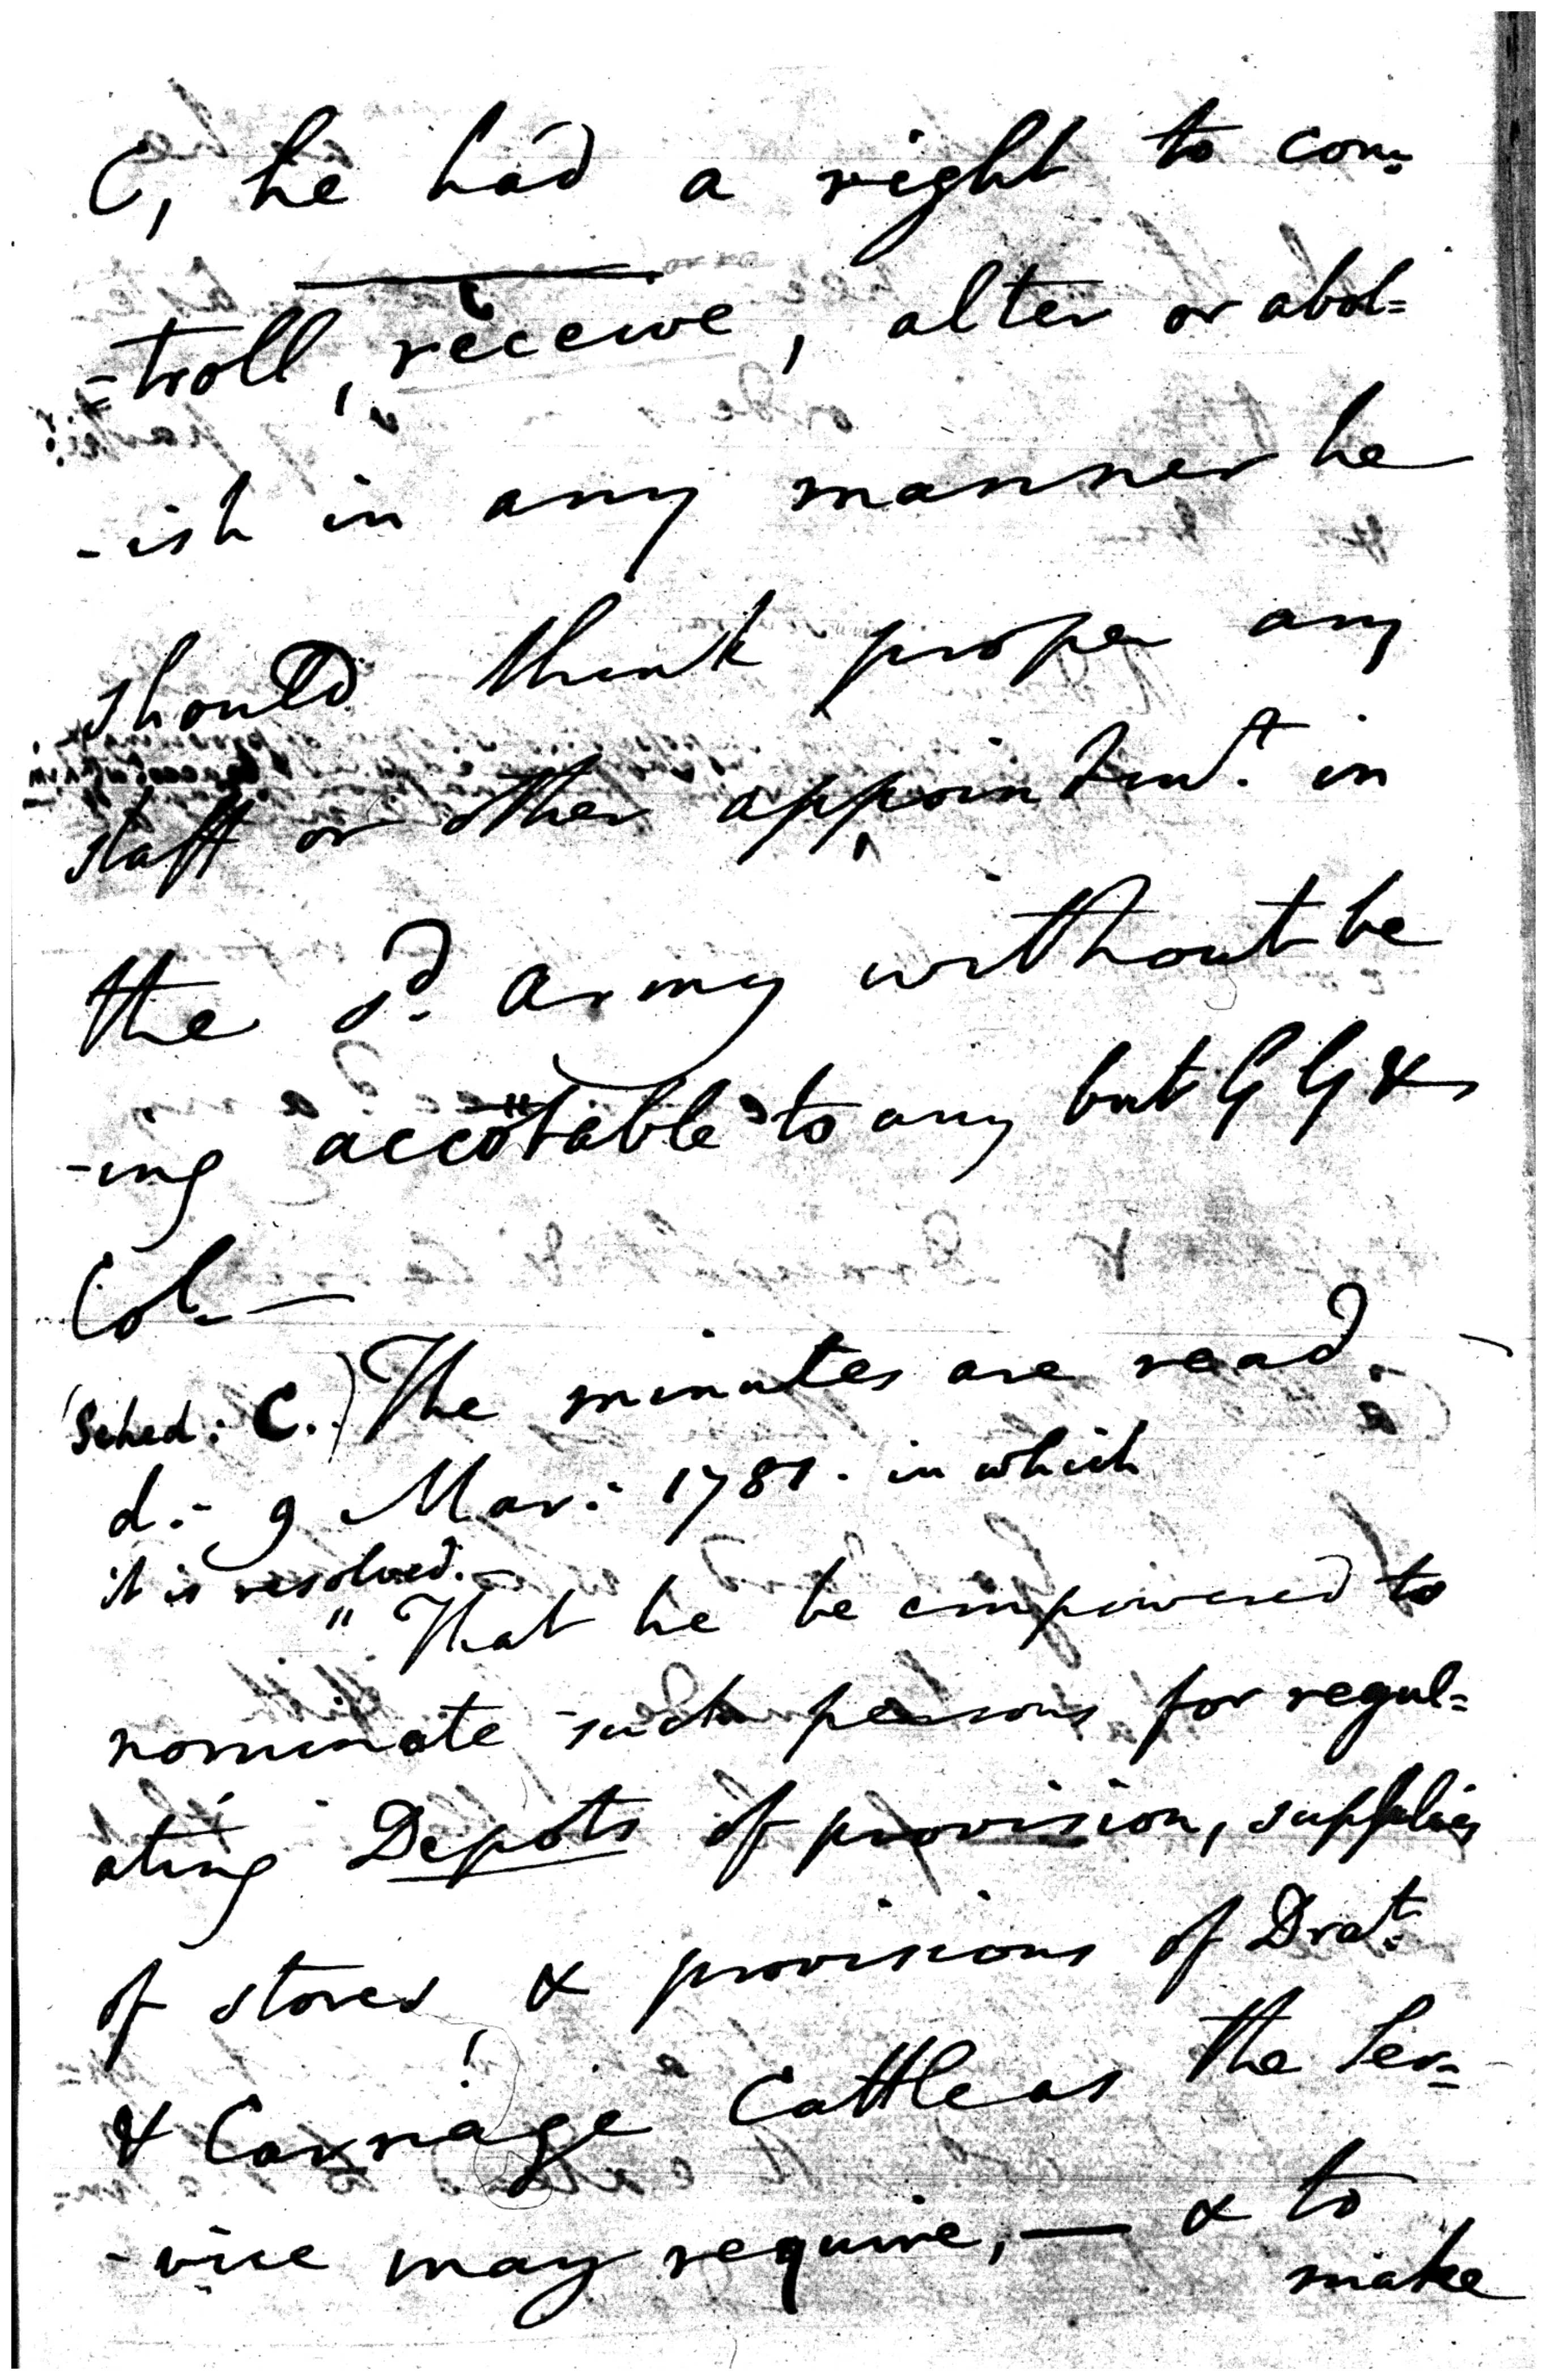 C, he had a right to con=
=troll, receive, alter or abol=
-ish in any manner he
should think proper any
staff or other appointmt. in
the sd. army without be
-ing accotable to any but G G &
Col. —
(Sched: C.) The minutes are read.
d:- 9 Mar: 1781. in which
it is resolved.—
" That he be empowered to
nominate such persons for regul=
ating Depots of provision, supplies
of stores, & provisions of Drat.
& Carriage Cattle as the Ser=
-vice may require, — & to
make